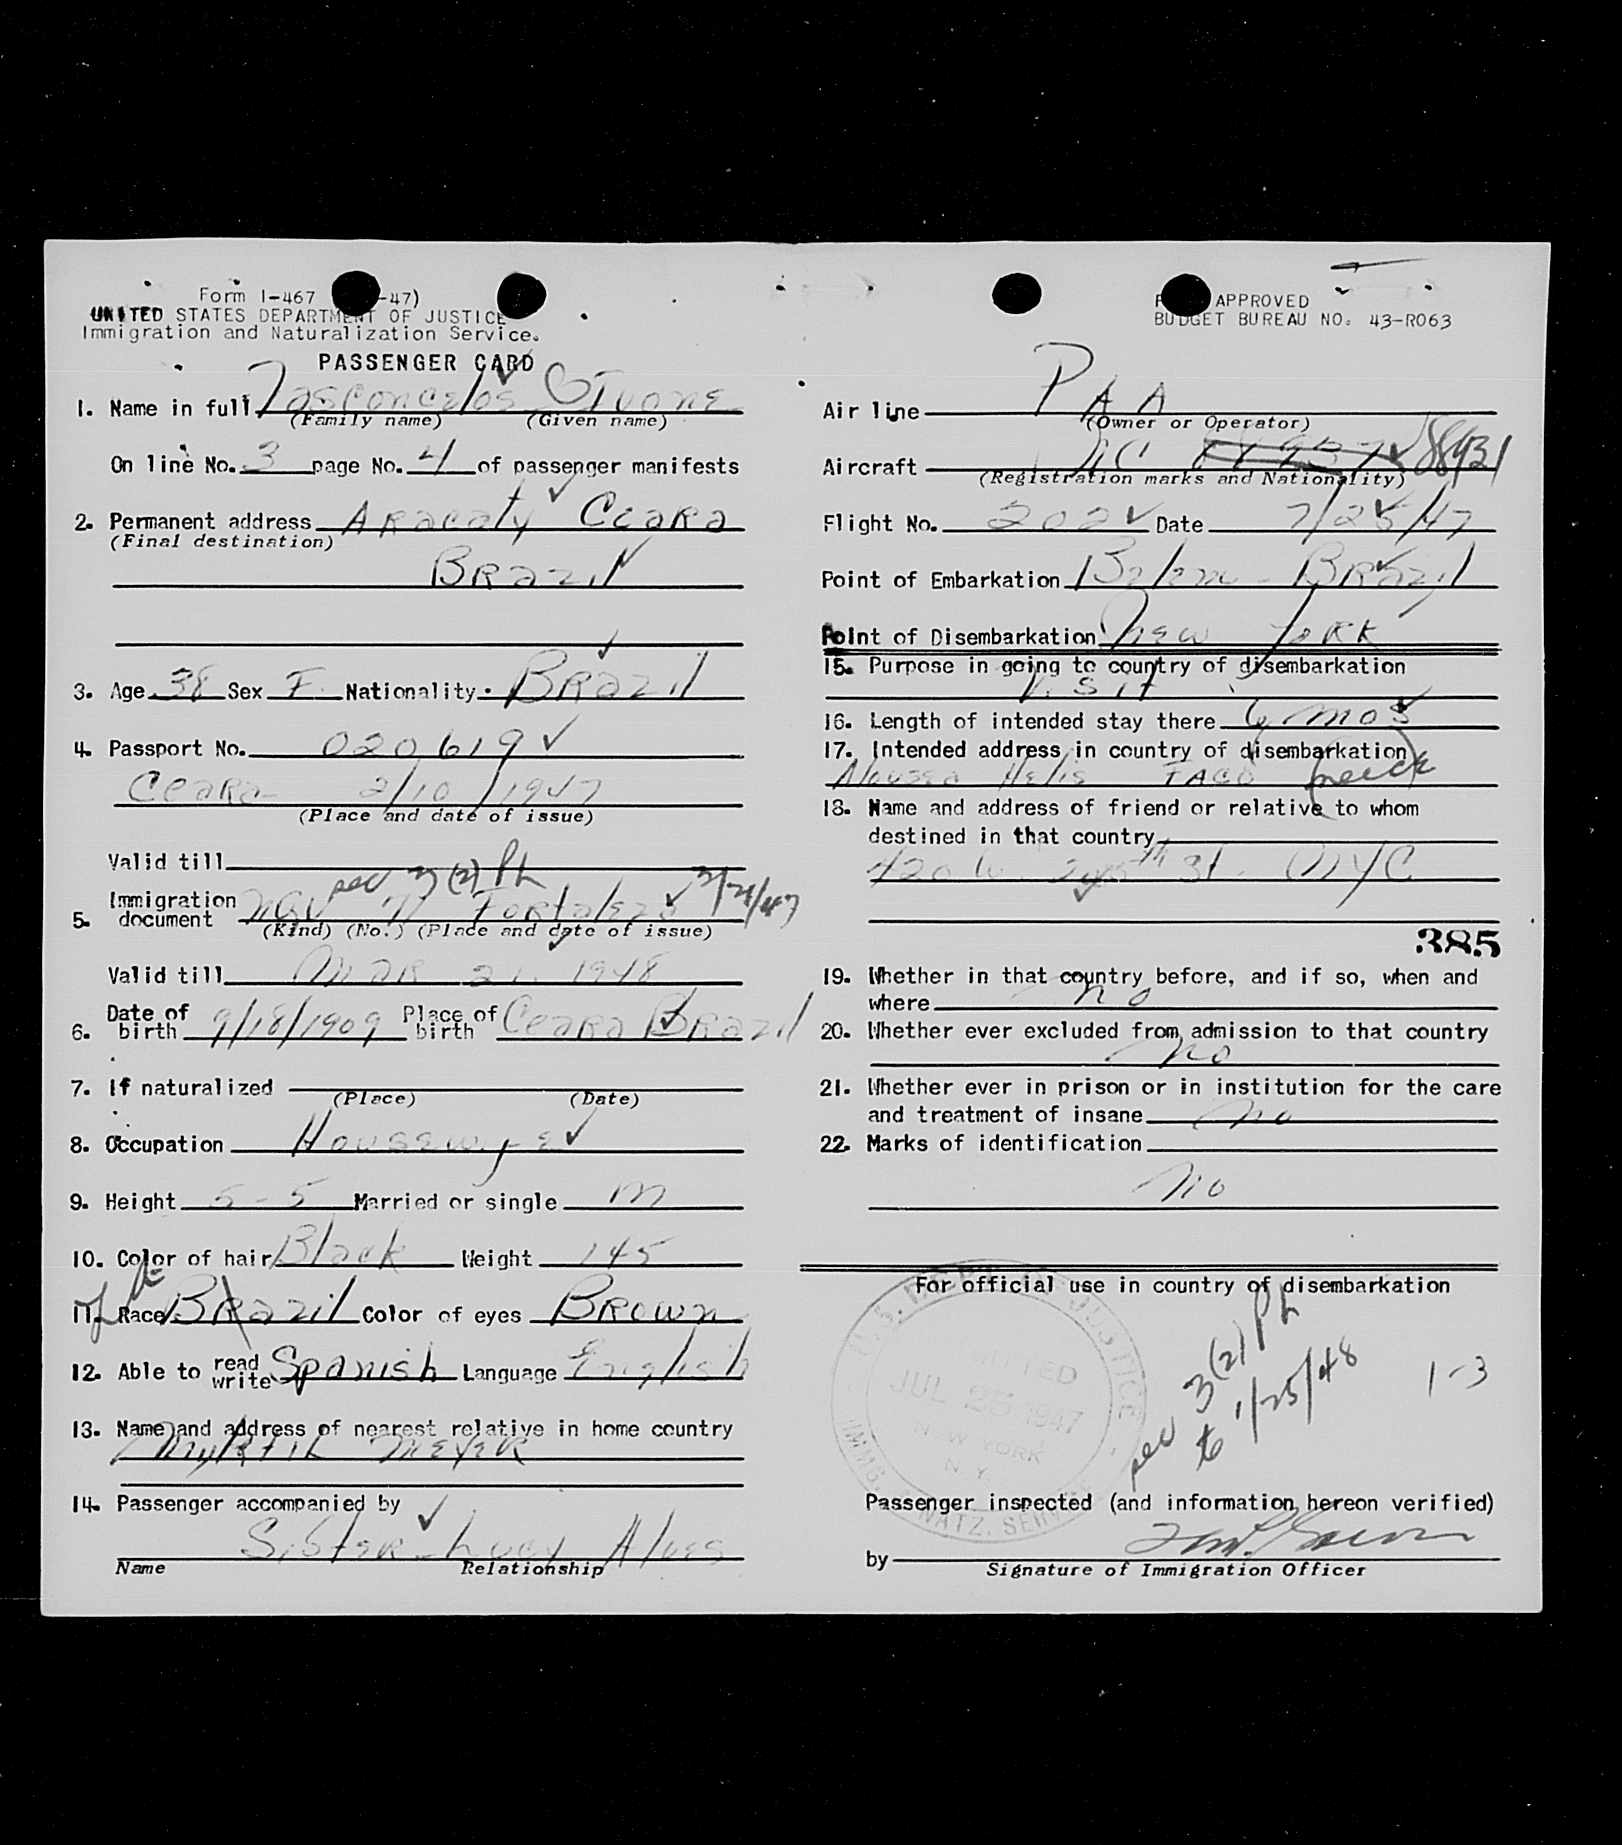 Form I-467 -47)
UNITED STATES DEPARTMENT OF JUSTICE
Immigration and Naturalization Service.
PASSENGER CARD
1. Name in full Vasconcelos Ivone
(Family name) (Given name)
On line No. 3 page No. 4 of passenger manifests
2. Permanent address Aracaty Ceara
(Final destination)
Brazil
3. Age 38 Sex F. Nationality Brazil
4. Passport No. 020619
Ceara 2/10/1947
(Place and date of issue)
Valid till
sec 3(2) Ph
5. Immigration document 71 Fortaleza 3/21/47
(Kind) (No.) (Place and date of issue)
Valid till Mar 21. 1948
6. Date of birth 9/18/1909 Place of birth Ceara Brazil
7. If naturalized
(Place) (Date)
8. Occupation Housewife
9. Height 5-5 Married or single M
10. Color of hair Black Weight 145
11. Race Brazil Color of eyes Brown
12. Able to read write Spanish Language English
13. Name and address of nearest relative in home country
Meyer
14. Passenger accompanied by
Sister Lucy Alves
Name Relationship
APPROVED
BUDGET BUREAU NO. 43-R063
Air line PAA
(Owner or Operator)
Aircraft NC 88931
(Registration marks and Nationality)
Flight No. 202 Date 7/25/47
Point of Embarkation Belem - Brazil
Point of Disembarkation New York
15. Purpose in going to country of disembarkation
Visit
16. Length of intended stay there 6 mos
17. Intended address in country of disembarkation
18. Name and address of friend or relative to whom
destined in that country
St. NYC
385
19. Whether in that country before, and if so, when and
where no
20. Whether ever excluded from admission to that country
No
21. Whether ever in prison or in institution for the care
and treatment of insane No
22. Marks of identification
No
For official use in country of disembarkation
U.S. DEPT. OF JUSTICE
ADMITTED
JUL 25 1947
NEW YORK
N.Y.
IMMG. & NATZ. SERVICE
sec 3(2) Ph
to 1/25/48
1-3
Passenger inspected (and information hereon verified)
by
Signature of Immigration Officer